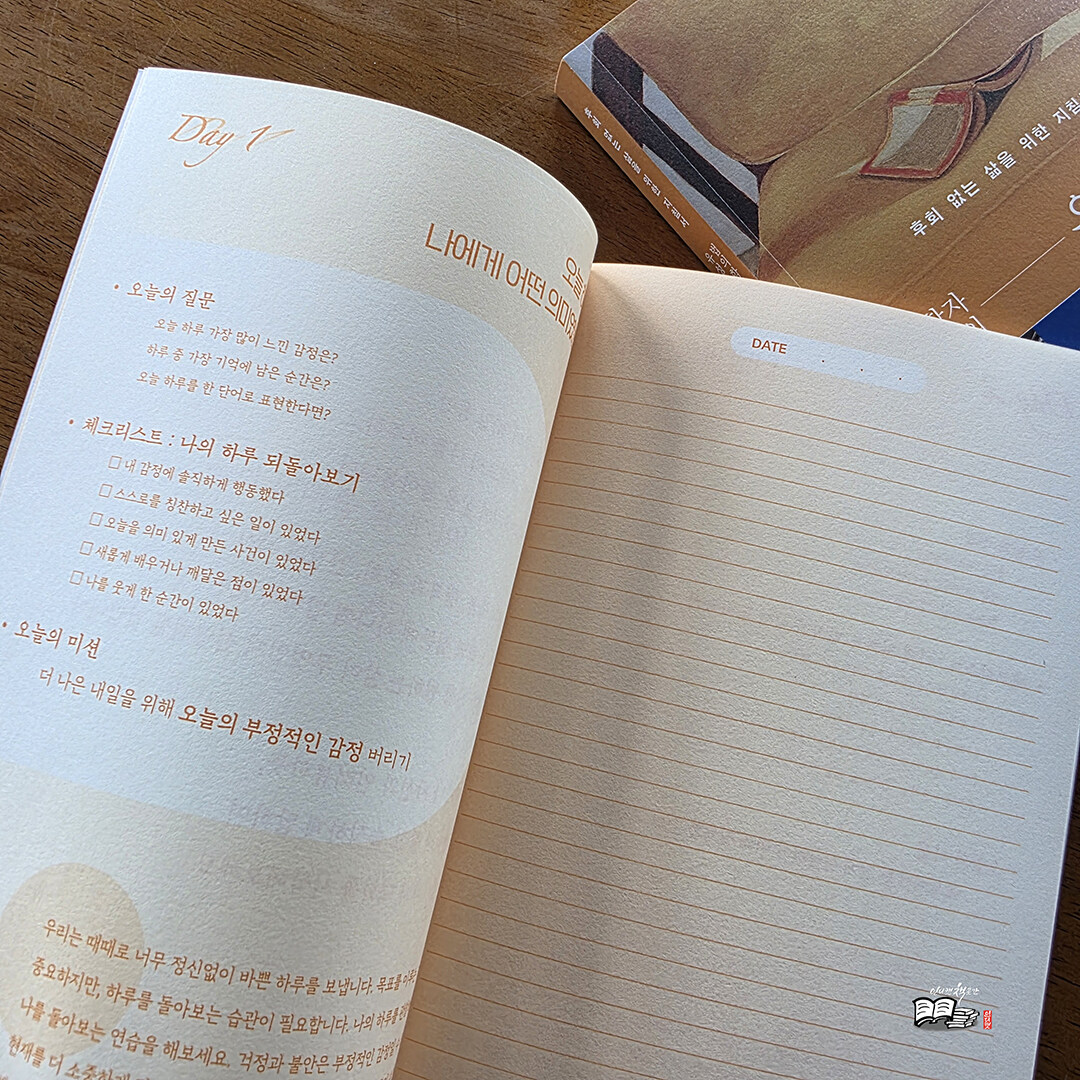 Day 1
오늘
나에게 어떤 의미였
• 오늘의 질문
오늘 하루 가장 많이 느낀 감정은?
하루 중 가장 기억에 남은 순간은?
오늘 하루를 한 단어로 표현한다면?
• 체크리스트 : 나의 하루 되돌아보기
□ 내 감정에 솔직하게 행동했다
□ 스스로를 칭찬하고 싶은 일이 있었다
□ 오늘을 의미 있게 만든 사건이 있었다
□ 새롭게 배우거나 깨달은 점이 있었다
□ 나를 웃게 한 순간이 있었다
• 오늘의 미션
더 나은 내일을 위해 오늘의 부정적인 감정 버리기
우리는 때때로 너무 정신없이 바쁜 하루를 보냅니다. 목표를
중요하지만, 하루를 돌아보는 습관이 필요합니다. 나의 하루를
나를 돌아보는 연습을 해보세요. 걱정과 불안은 부정적인
현재를 더 소중하게
DATE
후회 없는 삶을 위한 지침서
후회 없는 삶을 위한 지침